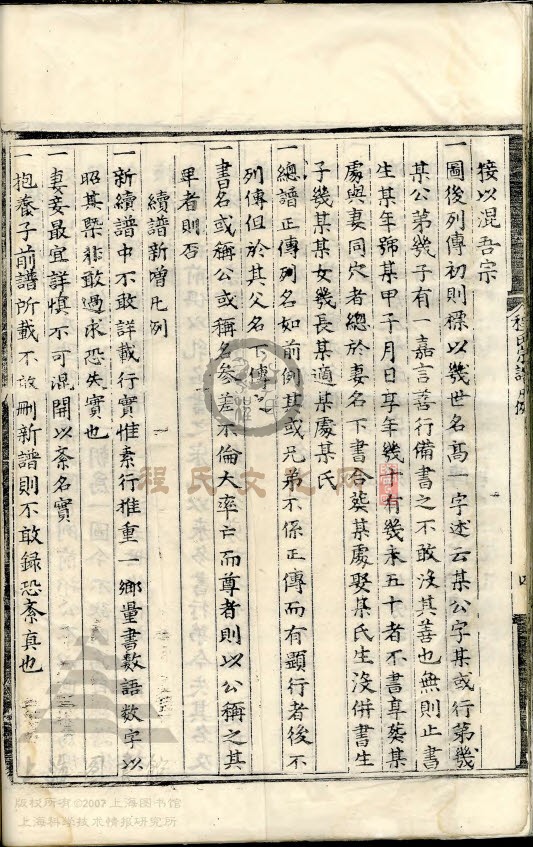 接以混吾宗
一圖後列傳初則標以幾世名高一字述云某公字某或行第幾
某公第幾子有一嘉言善行備書之不敢沒其善也無則止書
生某年號某甲子月日享年幾十有幾未五十者不書享葬某
處與妻同穴者總於妻名下書合葬某處娶某氏生沒併書生
子幾某某女幾長某適某處某氏
一總譜正傳列名如前例其或兄弟不係正傳而有顯行者後不
列傳但於其父名下傳之
一書名或稱公或稱名參差不倫大率亡而尊者則以公稱之其
卑者則否
續譜新增凡例
一新續譜中不敢詳載行實惟素行推重一鄉量書數語數字以
昭其槩非敢過求恐失實也
一妻妾最宜詳慎不可混開以紊名實
一抱養子前譜所載不敢刪新譜則不敢録恐紊真也
程氏宗譜 凡例
四
程氏文史网
版权所有©2007上海图书馆
上海科学技术情报研究所